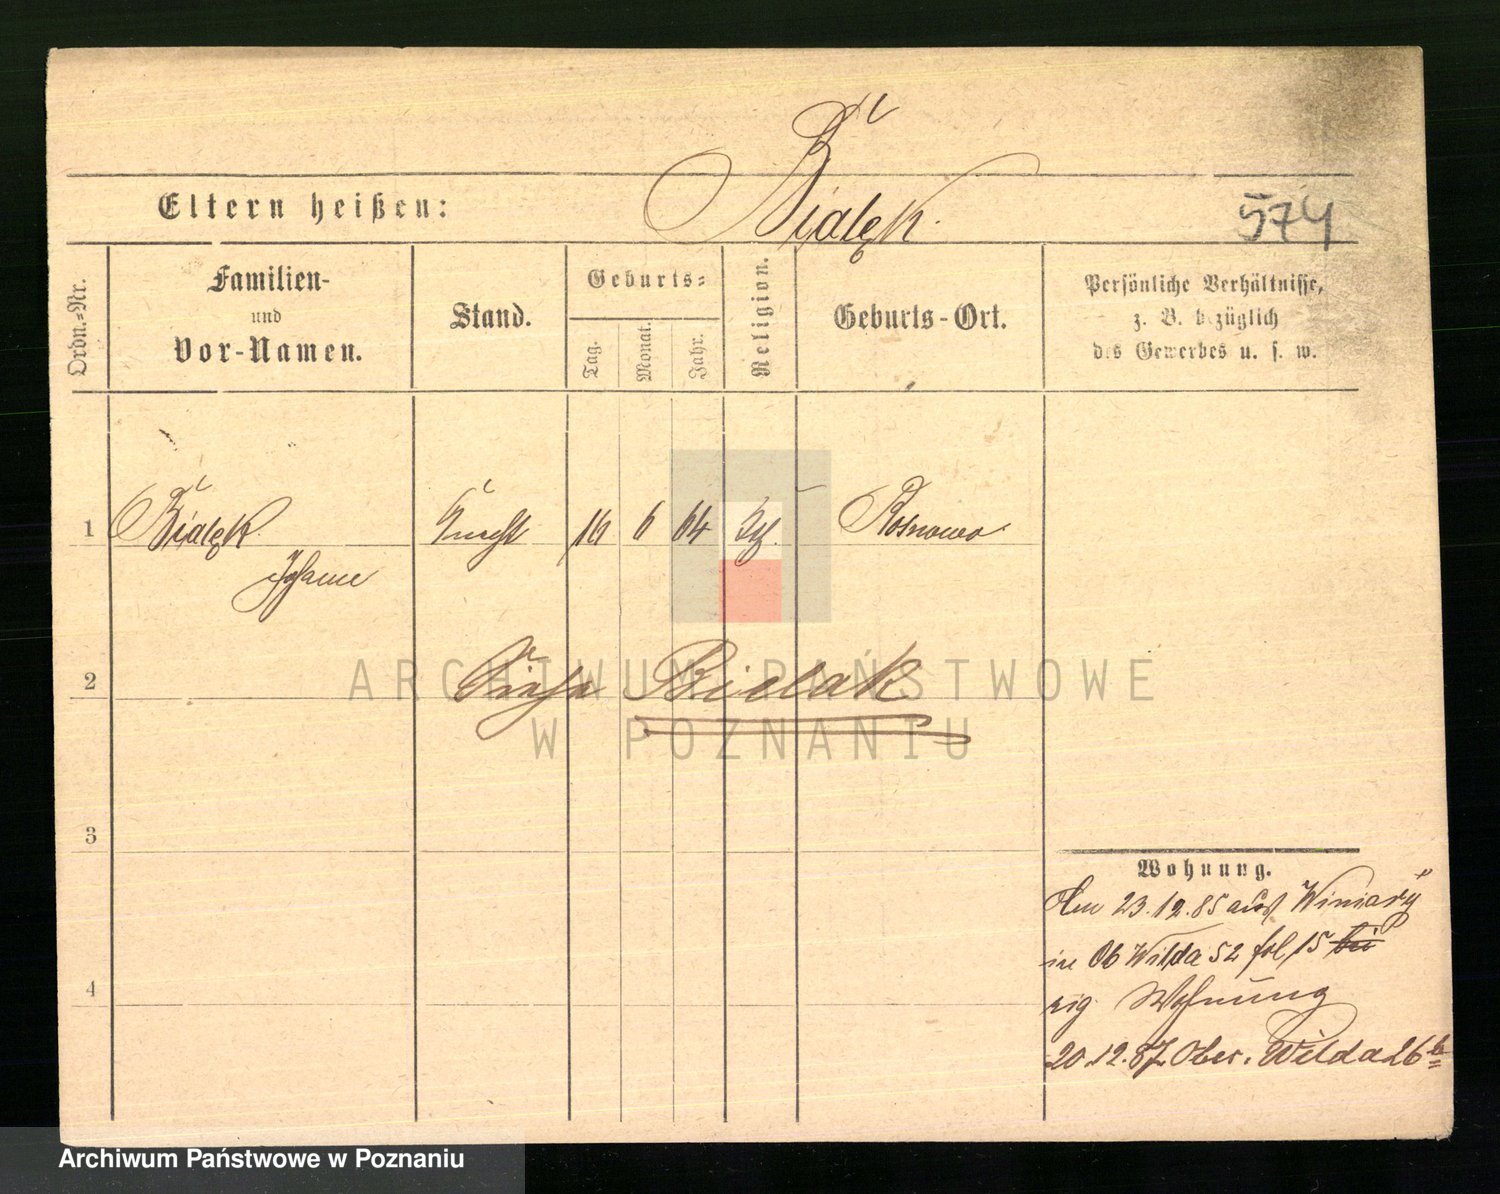 Bialęk.
Eltern heißen:
574
Ordn.-Nr.
Familien-
und
Vor-Namen.
Stand.
Geburts-
Tag.
Monat.
Jahr.
Religion.
Geburts-Ort.
Persönliche Verhältnisse,
z. B. bezüglich
des Gewerbes u. s. w.
1 Bialęk Knecht 16 6 64 Rosnowo
2 Siehe Bialak
3
4
Wohnung.
Am 23.12.85 aus Winiary
in Ob Wilda 52 fol 15 bei
eig Wohnung
20.12.87 Ober. Wilda 26 b
ARCHIWUM PAŃSTWOWE
W POZNANIU
Archiwum Państwowe w Poznaniu